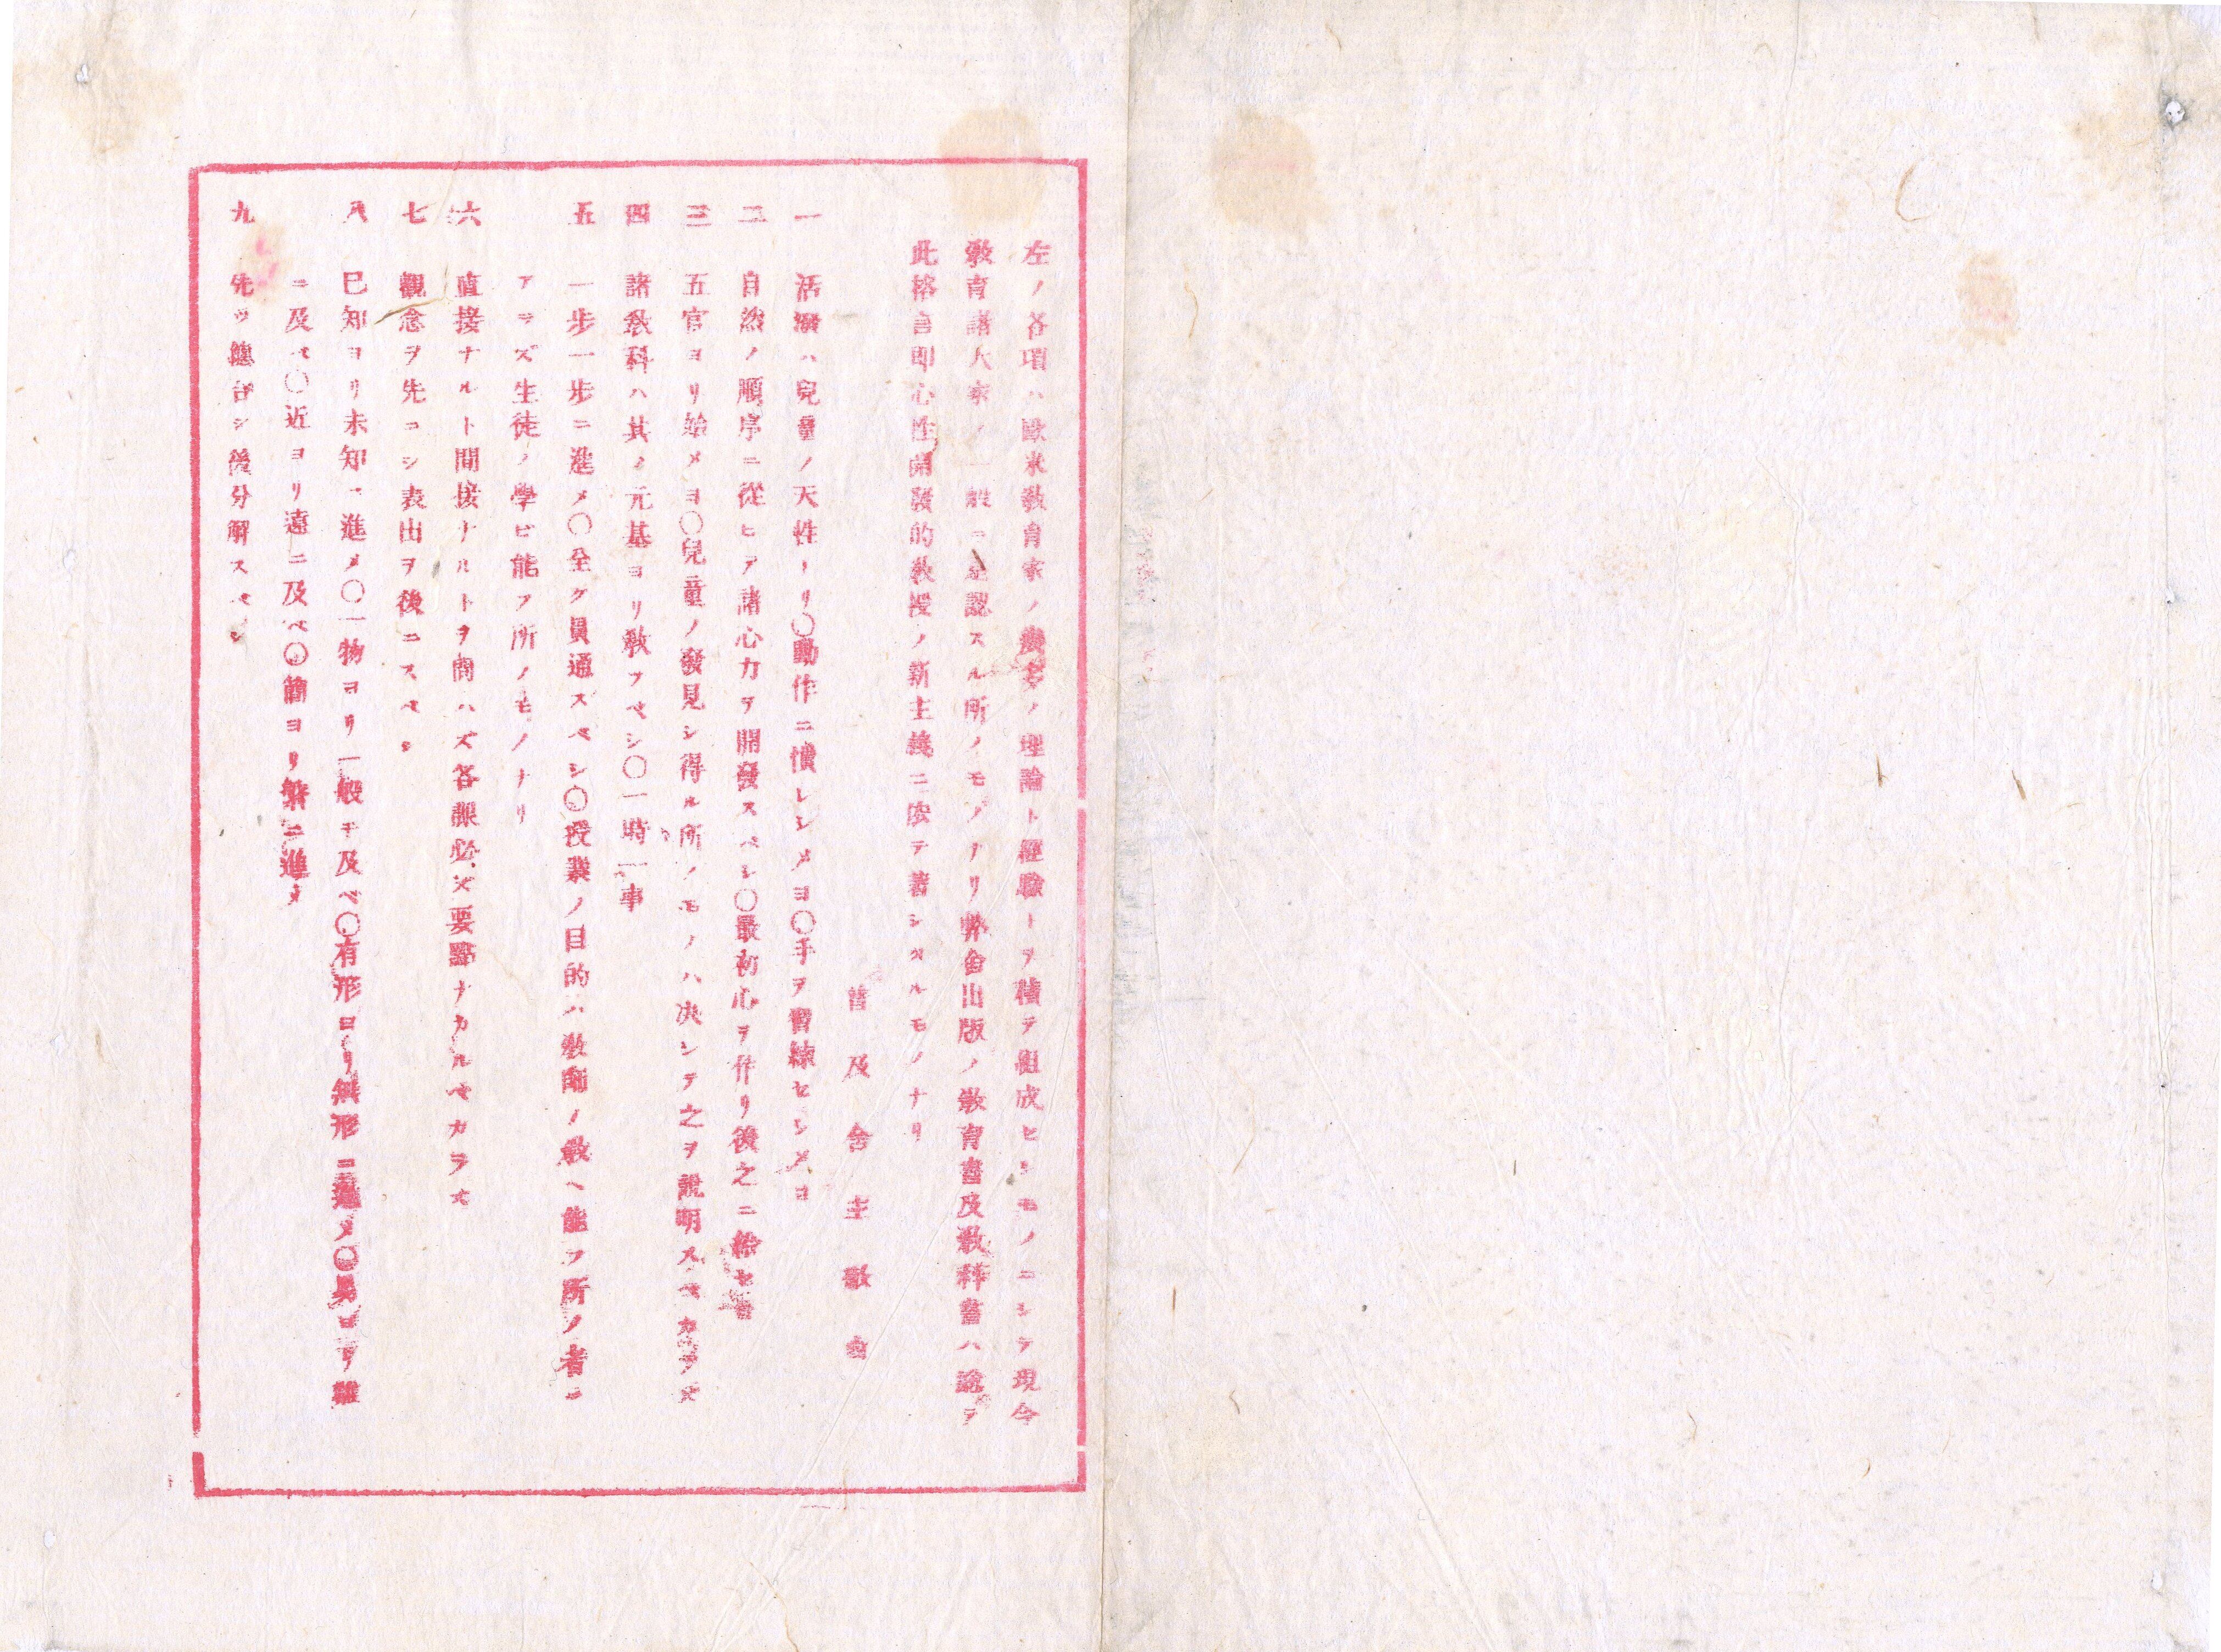 左ノ各項ハ歐米敎育家ノ許多ノ理論ト經驗トヲ積テ組成セシモノニシテ現今
敎育諸大家ノ一般ニ是認スル所ノモノナリ弊舍出版ノ敎育書及敎科書ハ總テ
此格言即心性開發的敎授ノ新主義ニ依テ著シタルモノナリ
普及舍主敬白
一 活潑ハ兒童ノ天性ナリ〇動作ニ慣レシメヨ〇手ヲ習練セシメヨ
二 自然ノ順序ニ從ヒテ諸心力ヲ開發スベシ〇最初心ヲ作リ後之ニ給セヨ
三 五官ヨリ始メヨ〇兒童ノ發見シ得ル所ノモノハ决シテ之ヲ說明スベカラズ
四 諸敎科ハ其ノ元基ヨリ敎フベシ〇一時一事
五 一步一步ニ進メ〇全ク貫通スベシ〇授業ノ目的ハ敎師ノ敎ヘ能フ所ノ者ニ
アラズ生徒ノ學ビ能フ所ノモノナリ
六 直接ナルト間接ナルトヲ問ハズ各課必ズ要點ナカルベカラズ
七 觀念ヲ先ニシ表出ヲ後ニスベシ
八 已知ヨリ未知ニ進メ〇一物ヨリ一般ニ及ベ〇有形ヨリ無形ニ進メ〇易ヨリ難
ニ及ベ〇近ヨリ遠ニ及ベ〇簡ヨリ繁ニ進メ
九 先ヅ總合シ後分解スベシ